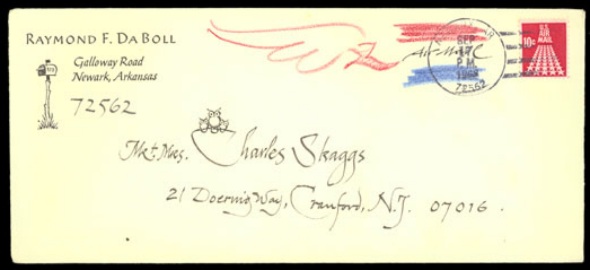 RAYMOND F. DABOLL
Galloway Road
Newark, Arkansas
72562
Air Mail
SEP
17
P.M.
72562
10c
U.S.
AIR MAIL
Mr. & Mrs. Charles Skaggs
21 Doering Way, Cranford, N.J. 07016.